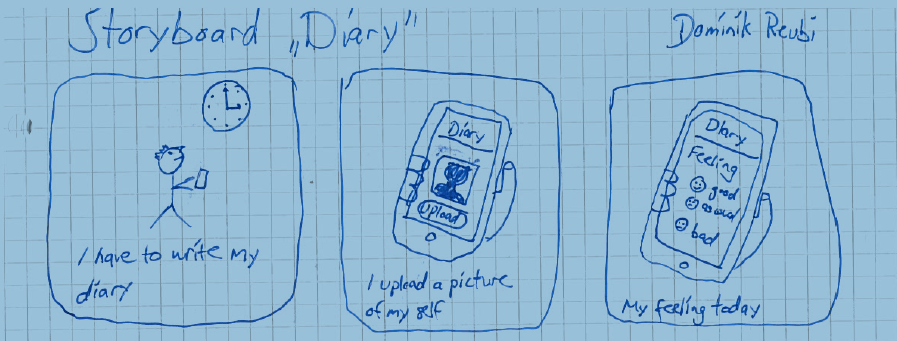 Storyboard „Diary" Dominik Reubi
I have to write my
diary
Diary
Upload
I upload a picture
of my self
Diary
Feeling
good
bad
My feeling today